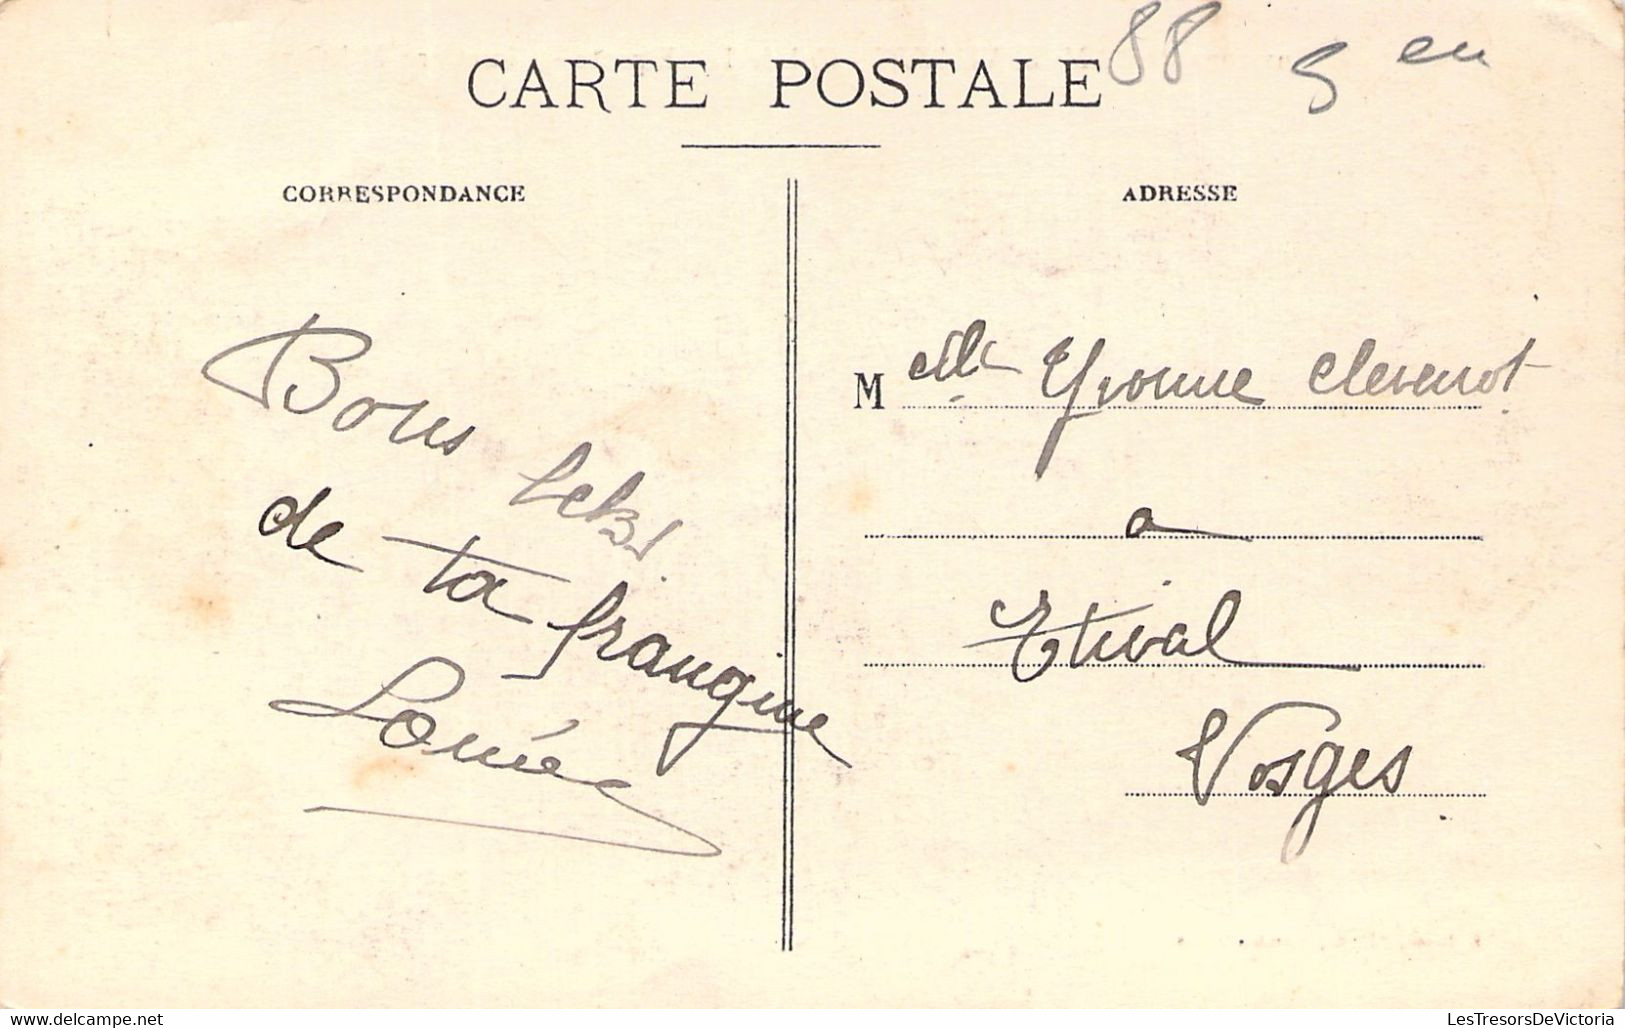 CARTE POSTALE
88
5 en
CORRESPONDANCE
ADRESSE
Bons
de ta frangine
M elle Yvonne Clevenot
a
Etival
Vosges
www.delcampe.net
LesTresorsDeVictoria